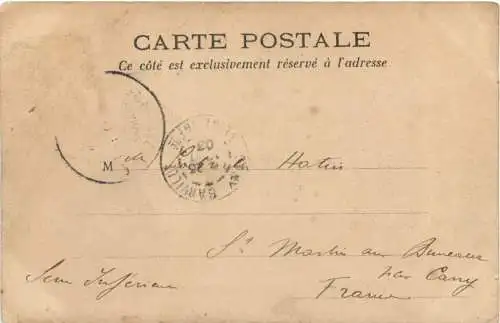 CARTE POSTALE
Ce côté est exclusivement réservé à l'adresse
M de
03
St Martin aux Buneaux
par Cany
Seine Inférieure
France